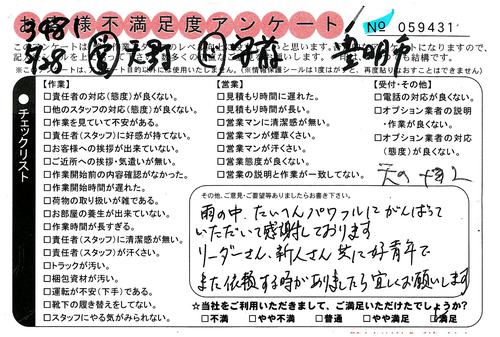 お客様不満足度アンケート
№ 059431
チェックリスト
【作業】
□責任者の対応(態度)が良くない。
□他のスタッフの対応(態度)が良くない。
□作業を見ていて不安がある。
□責任者(スタッフ)に好感が持てない。
□お客様への挨拶が出来ていない。
□ご近所への挨拶・気遣いが無い。
□作業開始前の内容確認がなかった。
□作業開始時間が遅れた。
□荷物の取り扱いが雑である。
□お部屋の養生が出来ていない。
□作業時間が長すぎる。
□責任者(スタッフ)に清潔感が無い。
□責任者(スタッフ)が汗くさい。
□トラックが汚い。
□梱包資材が汚い。
□運転が不安(下手)である。
□靴下の履き替えをしてない。
□スタッフにやる気がみられない。
【営業】
□見積もり時間に遅れた。
□見積もり時間が長い。
□営業マンに清潔感が無い。
□営業マンが煙草くさい。
□営業マンが汗くさい。
□営業態度が良くない。
□営業の説明と作業が一致してない。
【受付・その他】
□電話の対応が良くない。
□オプション業者の説明
・作業が良くない。
□オプション業者の対応
(態度)が良くない。
その他、ご意見・ご要望等ありましたらお書き下さい。
雨の中、たいへんパワフルにがんばって
いただいて感謝しております
リーダーさん、新人さん共に好青年で
また依頼する時がありましたら宜しくお願いします
☆当社をご利用いただきまして、ご満足いただけたでしょうか?
□不満 □やや不満 □普通 □やや満足 □満足